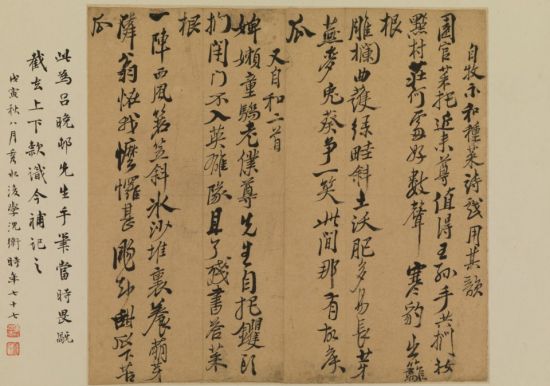 自牧示和種菜詩戲用其韻
園官菜把近來尊值得王孫手共捫妝
點村莊何處好數聲寒豹出籬
根
雕欄曲護綠畦斜土沃肥多易長芽
燕麥兔葵爭一笑此間那有故侯
瓜
又自和二首
婢嬾童驕老僕尊先生自把钁頭
捫閉門不入英雄隊且了殘書答菜
根
一陣西風箬笠斜冰沙堆裏養萌芽
隣翁怪我甚却甜下苦
瓜
此為呂晚邨先生手筆當時畏禍
截去上下款識今補記之
戊寅秋八月秀水後學沈衛時年七十七